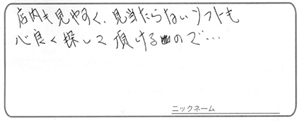 店内も見やすく、見当たらないソフトも
心良く探して頂けるので…
ニックネーム